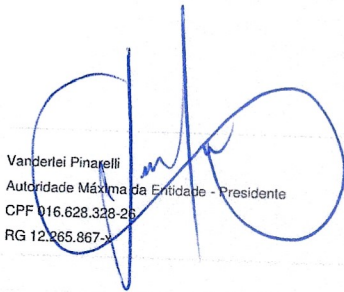 Vanderlei Pinarelli
Autoridade Máxima da Entidade - Presidente
CPF 016.628.328-26
RG 12.265.867-x